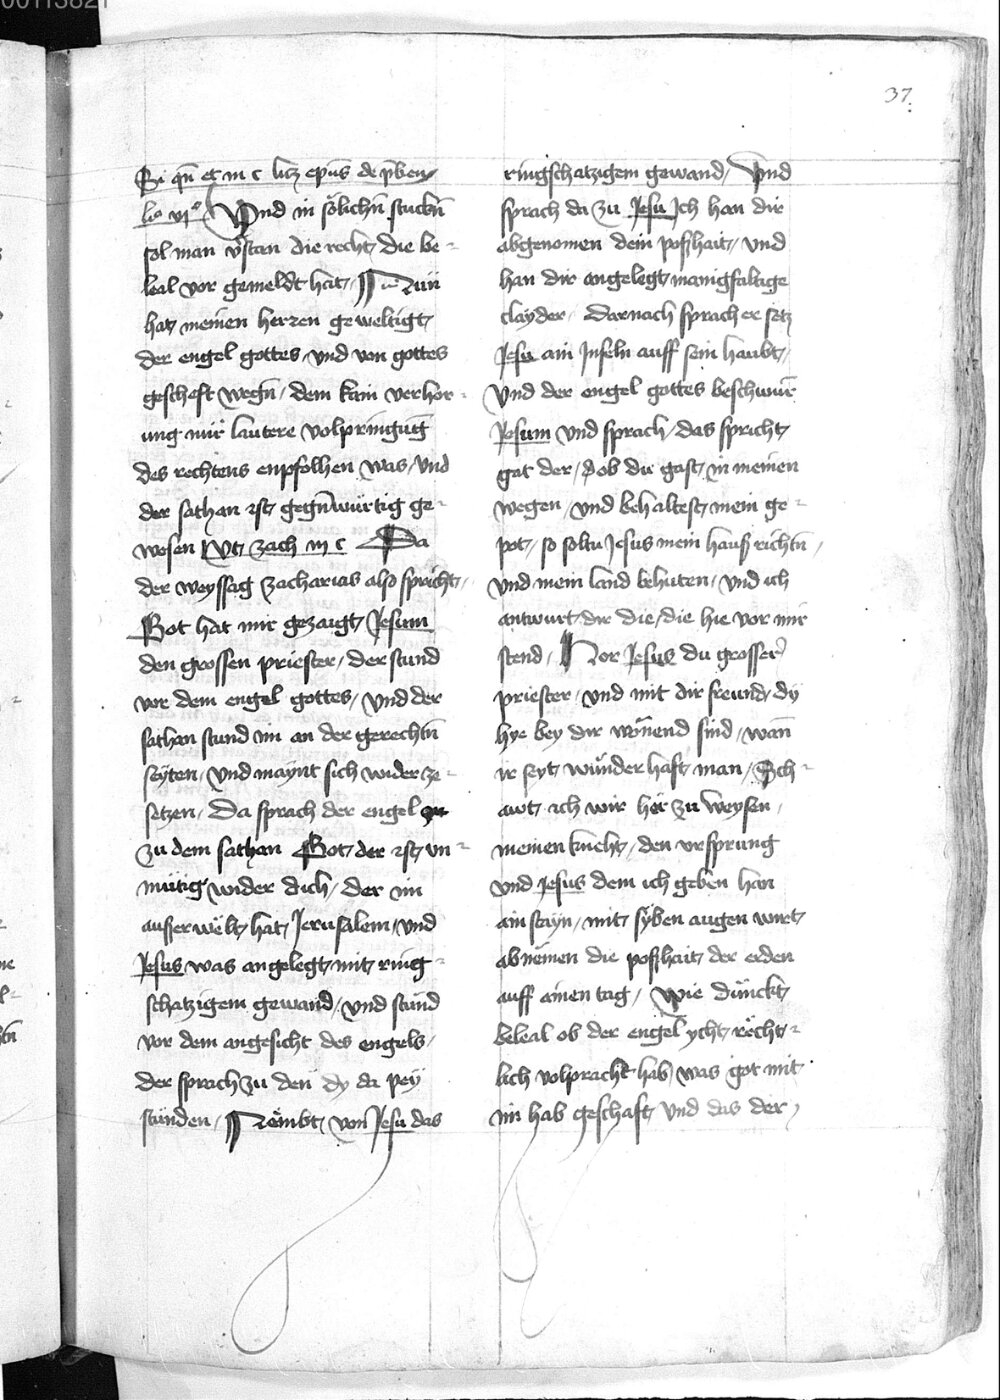 37
Si qn̄ et in c licz epūs de p̄ben
li° vi° Vnd in sölichn̄ stuckn̄
sol man v̓stan die recht, die be-
leal vor gemeldt hat, Nun
hat, meinen herren geweltigt,
der engel gottes, vnd von gottes
gescheft wegn̄, dem kain verhör-
ung nür lautere volpringūg
des rechtens enpfolhen was, vnd
der sathan ist, gegn̄würtig ge-
wesen Vt, zach iii c Da
der weyssag Zacharias also spricht,
Got hat mir gezaigt, Jesum
den grossen priester, der stund
vor dem engel gottes, vnd der
sathan stund im an der gerechtn̄
seyten, vnd maynt sich wider ze-
setzen, Da sprach der engel
zu dem sathan Got, der ist, vn-
mütig wider dich, der im
ausserwelt, hat, Jerusalem, vnd
Jesus was angelegt, mit, ring-
schatzigem gewand, vnd stund
vor dem angesicht des engels,
der sprach zu den dy da pey
stunden, Nembt, von Jesu das
ringschatzigem gewand, Vnd
sprach da zu Jesu Ich han dir
abgenomen dein poßhait, vnd
han dir angelegt, manigfaltige
clayder, Darnach sprach er setz
Jesu ain Infeln auff sein haubt,
Vnd der engel gottes beschwur
Jesum vnd sprach, das spricht,
got der, ob du gast, in meinen
wegen, vnd behaltest, mein ge-
pot, so soltu Jesus mein hauß richtn̄,
vnd mein land behuten, vnd ich
antwurt, dir die, die hie vor mir
stend, Hor Jesus du grosser
priester, vnd mit dir freund, dy
hye bey dir wonend sind, wan̄
ir seyt, wunderhaft, man, Sch-
awt, ich wir her zu weysen,
meinen knecht, den vrsprung
vnd Jesus dem ich geben han
ain stayn, mit, syben augen wirt,
abnemen die poßhait, der erden
auff ainen tag, Wie dünckt,
beleal ob der engel ycht, recht-
lich volpracht hab, was got mit
im hab geschaft, vnd das der,